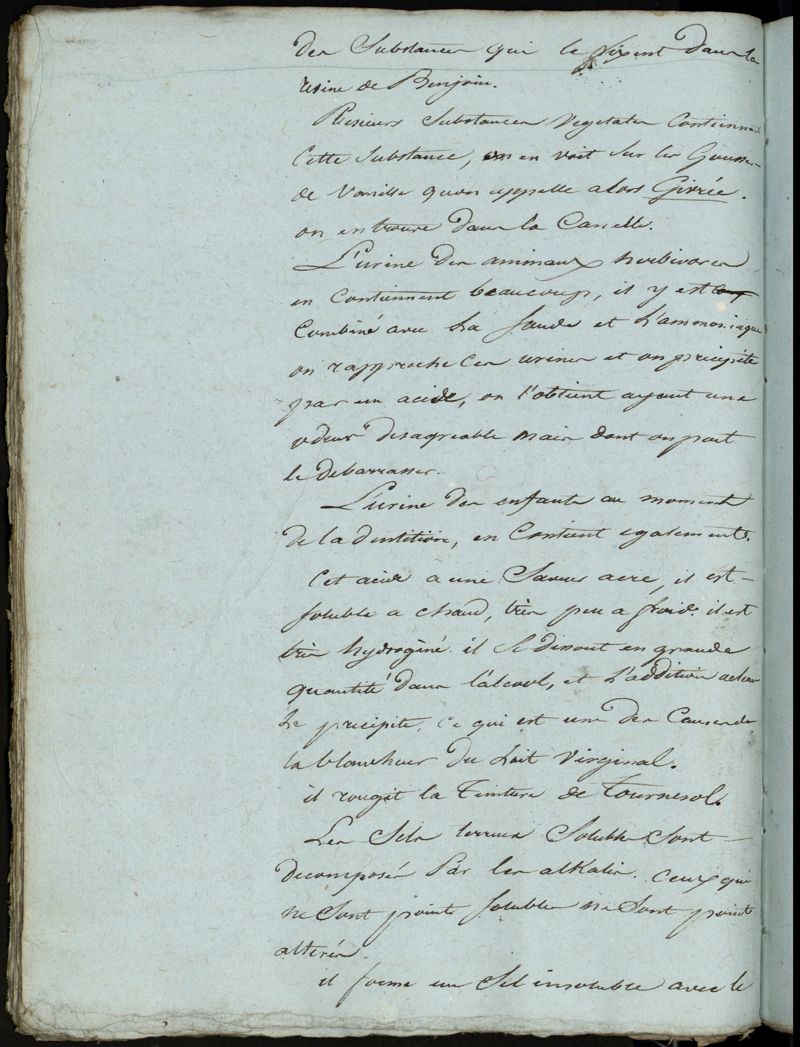 des Substances qui le fixent dans la
resine de Benjoin.
Plusieurs Substances Vegetales Contiennent
Cette Substance, on en voit sur les Gousses
de Vanille qu'on appelle alors Givrée.
on en trouve dans la Canelle.
L'urine des animaux herbivores
en Contiennent beaucoup, il y est
Combiné avec La Soude et L'ammoniaque
on rapproche Ces urines et on precipite
par un acide, on l'obtient ayant une
odeur desagreable mais dont on peut
le debarrasser.
L'urine des enfants au moment
de la dentition, en Contient egalement.
Cet acide a une Saveur acre, il est
soluble a chaud, très peu a froid. il est
très hydrogéné. il Se dissout en grande
quantité dans l'alcool, et L'addition de l'eau
Le precipite, Ce qui est une des Causes de
la blancheur du Lait Virginal.
il rougit la Teinture de Tournesol.
Les Sels terreux Solubles Sont
decomposés Par les alkalis. Ceux qui
ne Sont point Solubles ne Sont point
alterés.
il forme un Sel insoluble avec le